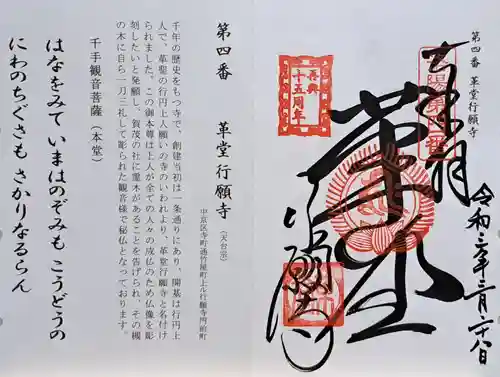 第四番 革堂行願寺
奉拝
洛陽第四番
再興
十五周年
革堂
行願寺
令和二年二月二十八日
第四番 革堂行願寺（天台宗）
中京区寺町通竹屋町上ル行願寺門前町
千年の歴史をもつ寺で、創建当初は一条通りにあり、開基は行円上
人で、革聖の行円上人願いの寺のいわれより、革堂行願寺と名付け
られました。この御本尊は上人が全ての人々の成仏のため仏像を彫
刻したいと発願し、賀茂の社に霊木があることを告げられ、その槻
の木に自ら一刀三礼して彫られた観音様で秘仏となっております。
千手観音菩薩（本堂）
はなをみて いまはのぞみも こうどうの
にわのちぐさも さかりなるらん